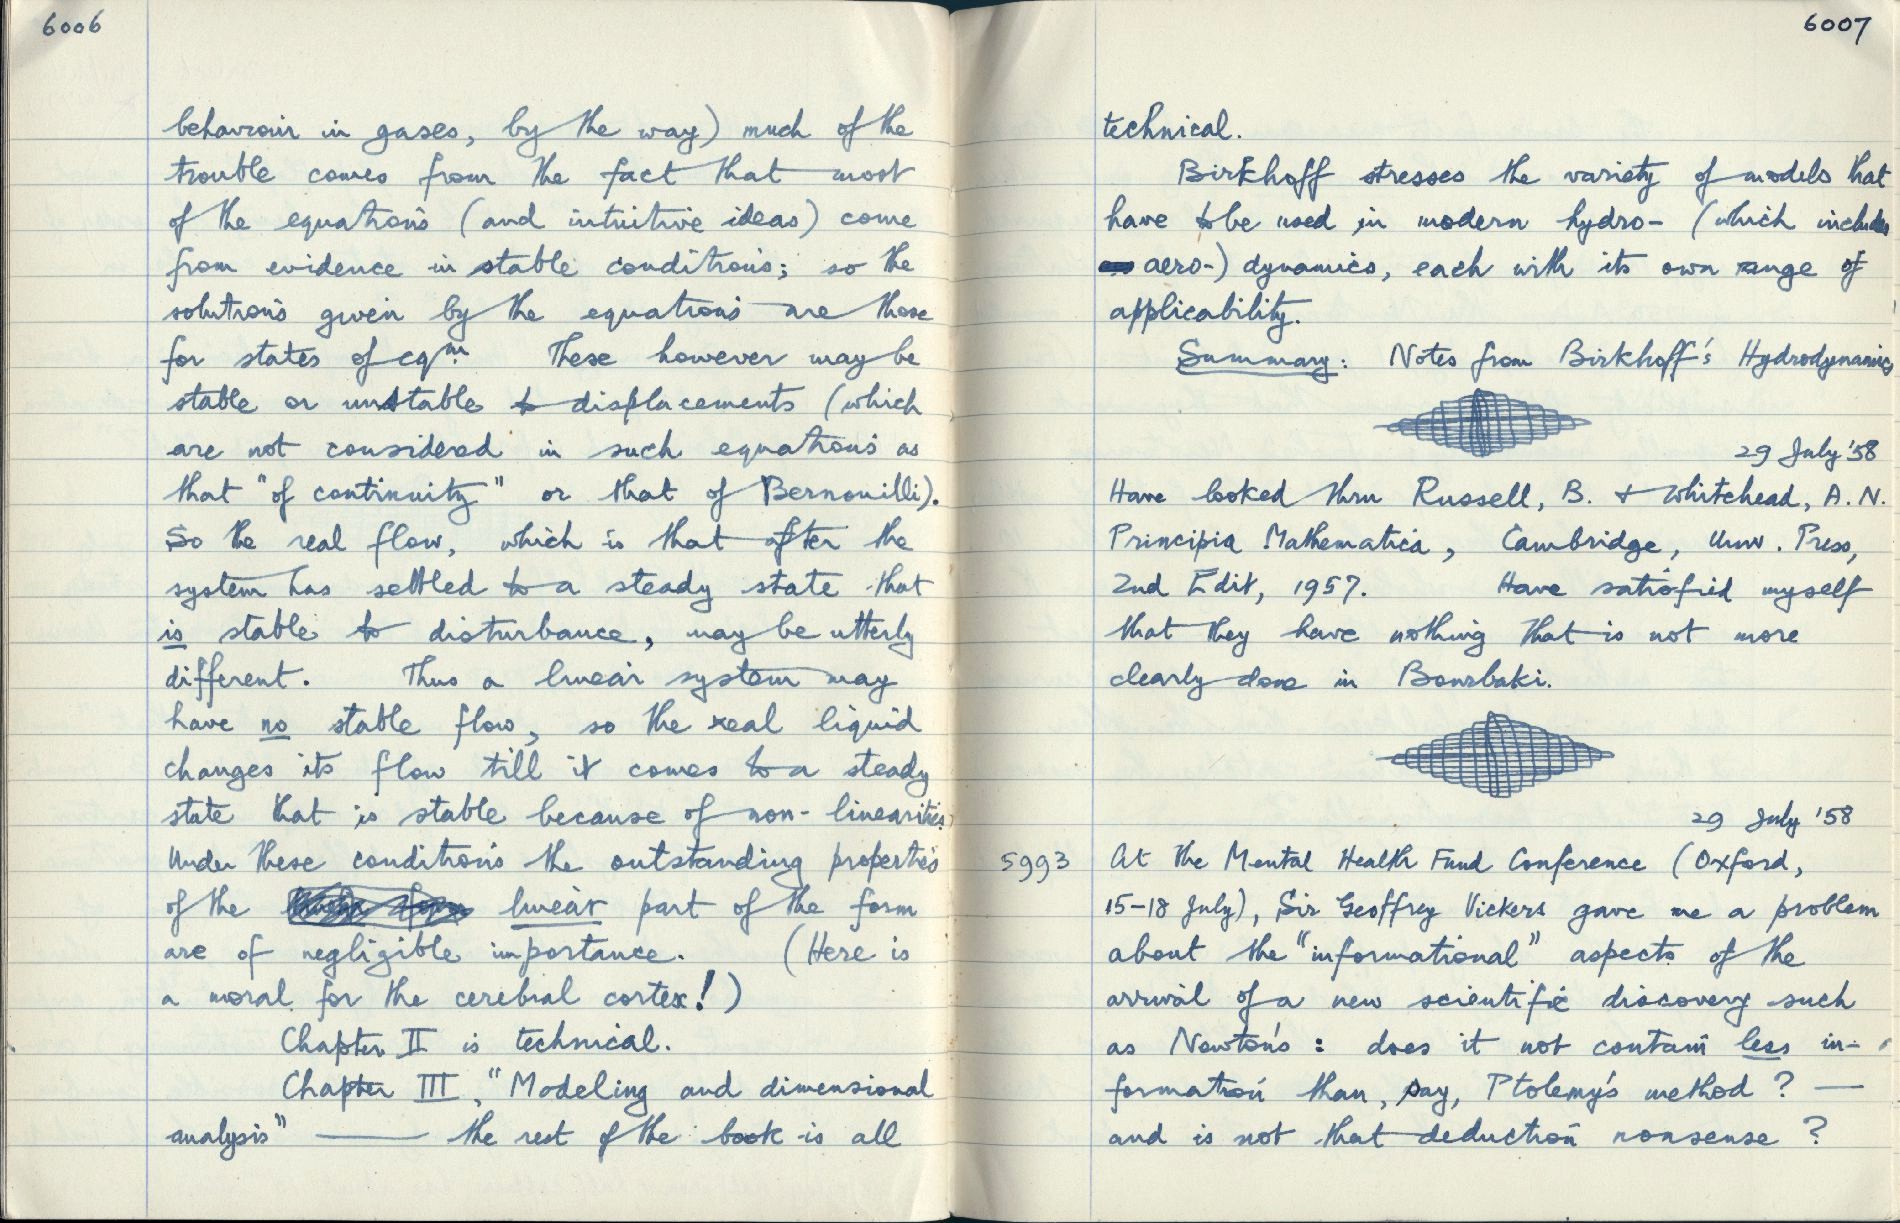 6006
behaviour in gases, by the way) much of the
trouble comes from the fact that most
of the equations (and intuitive ideas) come
from evidence in stable conditions; so the
solutions given by the equations are those
for states of eqm. These however may be
stable or unstable to displacements (which
are not considered in such equations as
that "of continuity" or that of Bernouilli).
So the real flow, which is that after the
system has settled to a steady state that
is stable to disturbance, may be utterly
different. Thus a linear system may
have no stable flow, so the real liquid
changes its flow till it comes to a steady
state that is stable because of non-linearities.
Under these conditions the outstanding properties
of the linear part of the form
are of negligible importance. (Here is
a moral for the cerebral cortex!)
Chapter II is technical.
Chapter III, "Modeling and dimensional
analysis" — the rest of the book is all
6007
technical.
Birkhoff stresses the variety of models that
have to be used in modern hydro- (which includes
aero-) dynamics, each with its own range of
applicability.
Summary: Notes from Birkhoff's Hydrodynamics
29 July '58
Have looked thru Russell, B. + Whitehead, A. N.
Principia Mathematica, Cambridge, Univ. Press,
2nd Edit, 1957. Have satisfied myself
that they have nothing that is not more
clearly done in Bourbaki.
29 July '58
5993 At the Mental Health Fund Conference (Oxford,
15-18 July), Sir Geoffrey Vickers gave me a problem
about the "informational" aspects of the
arrival of a new scientific discovery such
as Newton's: does it not contain less in-
formation than, say, Ptolemy's method? —
and is not that deduction nonsense?